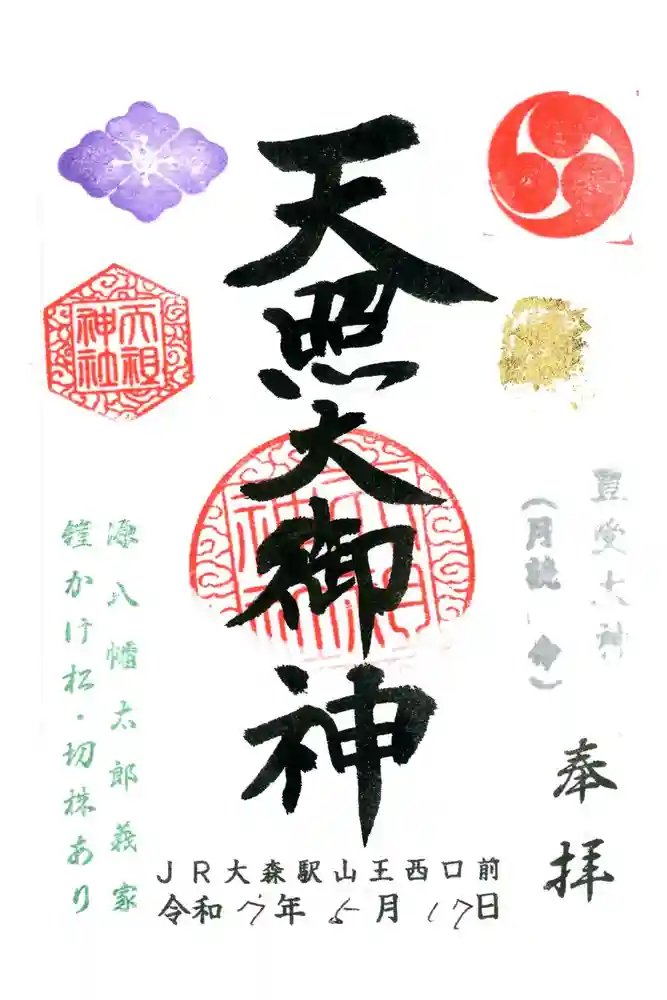 奉拝
豊受大神
(月読 命)
天照大御神
天祖
神社
源八幡太郎義家
鎧かけ松・切株あり
JR大森駅山王西口前
令和7年5月17日